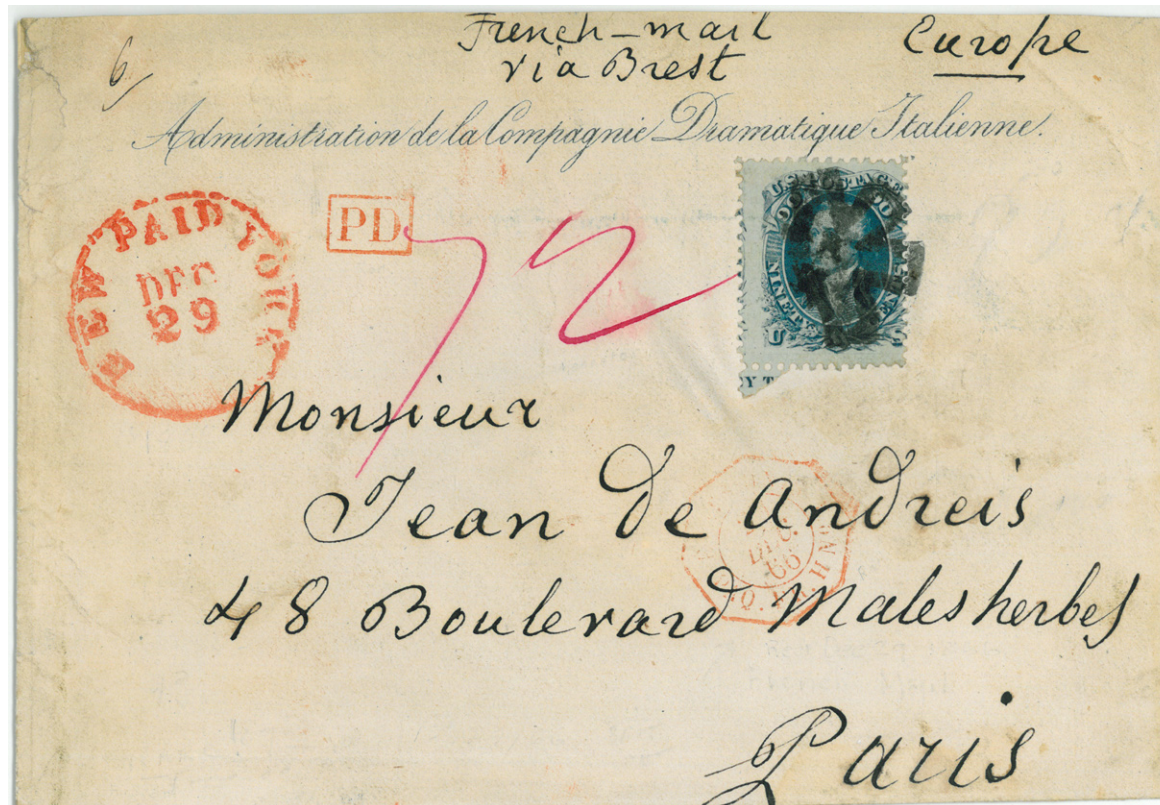 French-mail
via Brest
Europe
6/
Administration de la Compagnie Dramatique Italienne.
NEW PAID YORK
DEC
29
PD
72
U.S. POSTAGE
90 90
U
Y T
Monsieur
Jean de Andreis
DEC.
66
48 Boulevard Malesherbes
Paris